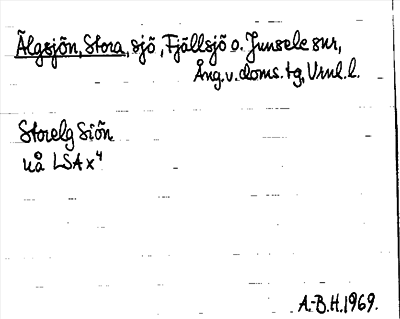 Älgsjön, Stora, sjö, Fjällsjö o. Junsele snr,
Ång. v. doms. tg, Vrnl. l.
Storelg Siön
uå LSA x⁴
A.-B.H. 1969.